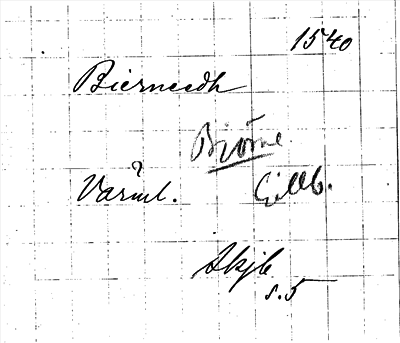 1540
Bierneedh
Biörne
?
Värml. Gillb.
Skjb
s. 5